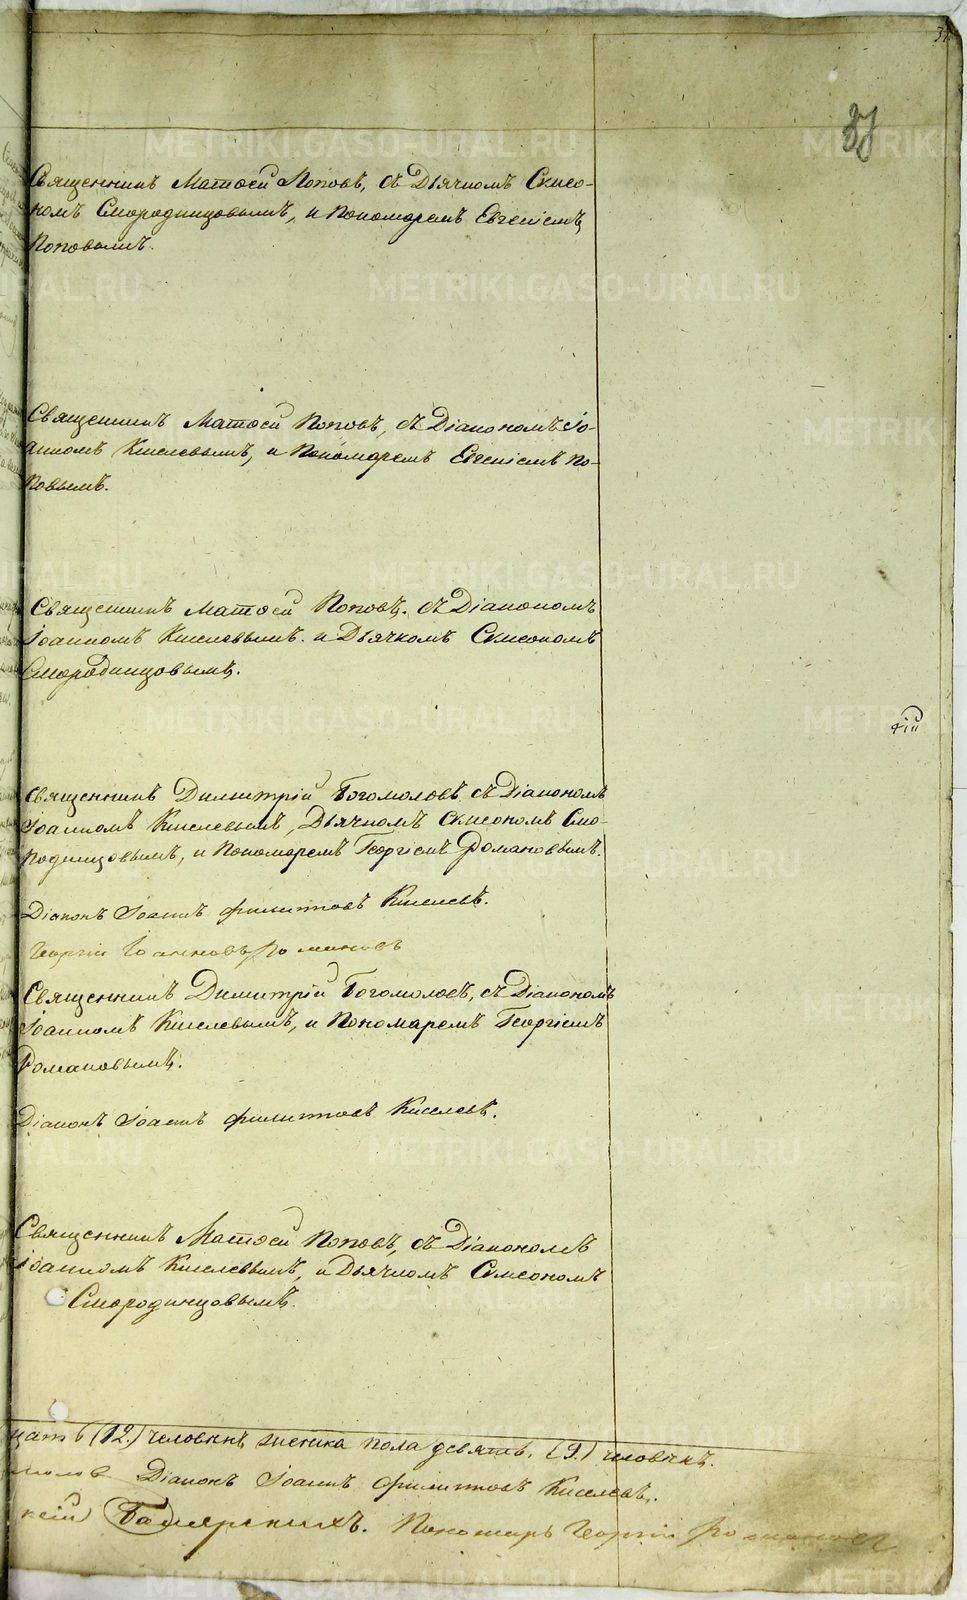 37
Священникъ Матѳей Поповъ, съ Дьячкомъ Симео-
номъ Смородинцовымъ, и Пономаремъ Евгеніемъ
Поповымъ.
Священникъ Матѳей Поповъ, съ Діакономъ Іо-
анномъ Киселевымъ, и Пономаремъ Евгеніемъ По-
повымъ.
Священникъ Матѳей Поповъ. съ Діакономъ
Іоанномъ Киселевымъ. и Дьячкомъ Симеономъ
Смородинцовымъ.
Священникъ Димитрій Богомоловъ съ Діакономъ
Іоанномъ Киселевымъ, Дьячкомъ Симеономъ Смо-
родинцовымъ, и Пономаремъ Георгіемъ Романовымъ.
Діаконъ Іоаннъ Филиповъ Киселевъ.
Георгій Іоанновъ Романовъ
Священникъ Димитрій Богомоловъ, съ Діакономъ
Іоанномъ Киселевымъ, и Пономаремъ Георгіемъ
Романовымъ.
Діаконъ Іоаннъ Филиповъ Киселевъ.
Священникъ Матѳей Поповъ, съ Діакономъ
Іоанномъ Киселевымъ, и Дьячкомъ Симеономъ
Смородинцовымъ.
цать (12.) человѣкъ женска пола девять, (9.) человѣкъ.
Діаконъ Іоаннъ Филиповъ Киселевъ.
Пономарь Георгій Романовъ
METRIKI.GASO-URAL.RU